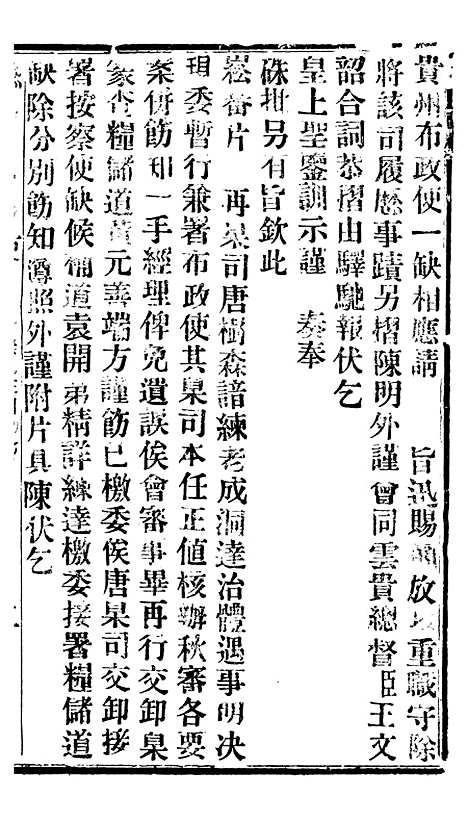 貴州布政使一缺相應請　旨迅賜簡放以重職守除
將該司履歷事蹟另摺陳明外謹會同雲貴總督臣王文
韶合詞恭摺由驛馳報伏乞
皇上聖鑒訓示謹　奏奉
硃批另有旨欽此
崧蕃片　再臬司唐樹森諳練老成洞達治體遇事明决
現委暫行兼署布政使其臬司本任正値核辦秋審各要
案併飭知一手經理俾免遺誤俟會審事畢再行交卸臬
篆查糧儲道黃元善端方謹飭已檄委俟唐臬司交卸接
署按察使缺候補道袁開弟精詳練達檄委接署糧儲道
缺除分別飭知遵照外謹附片具陳伏乞